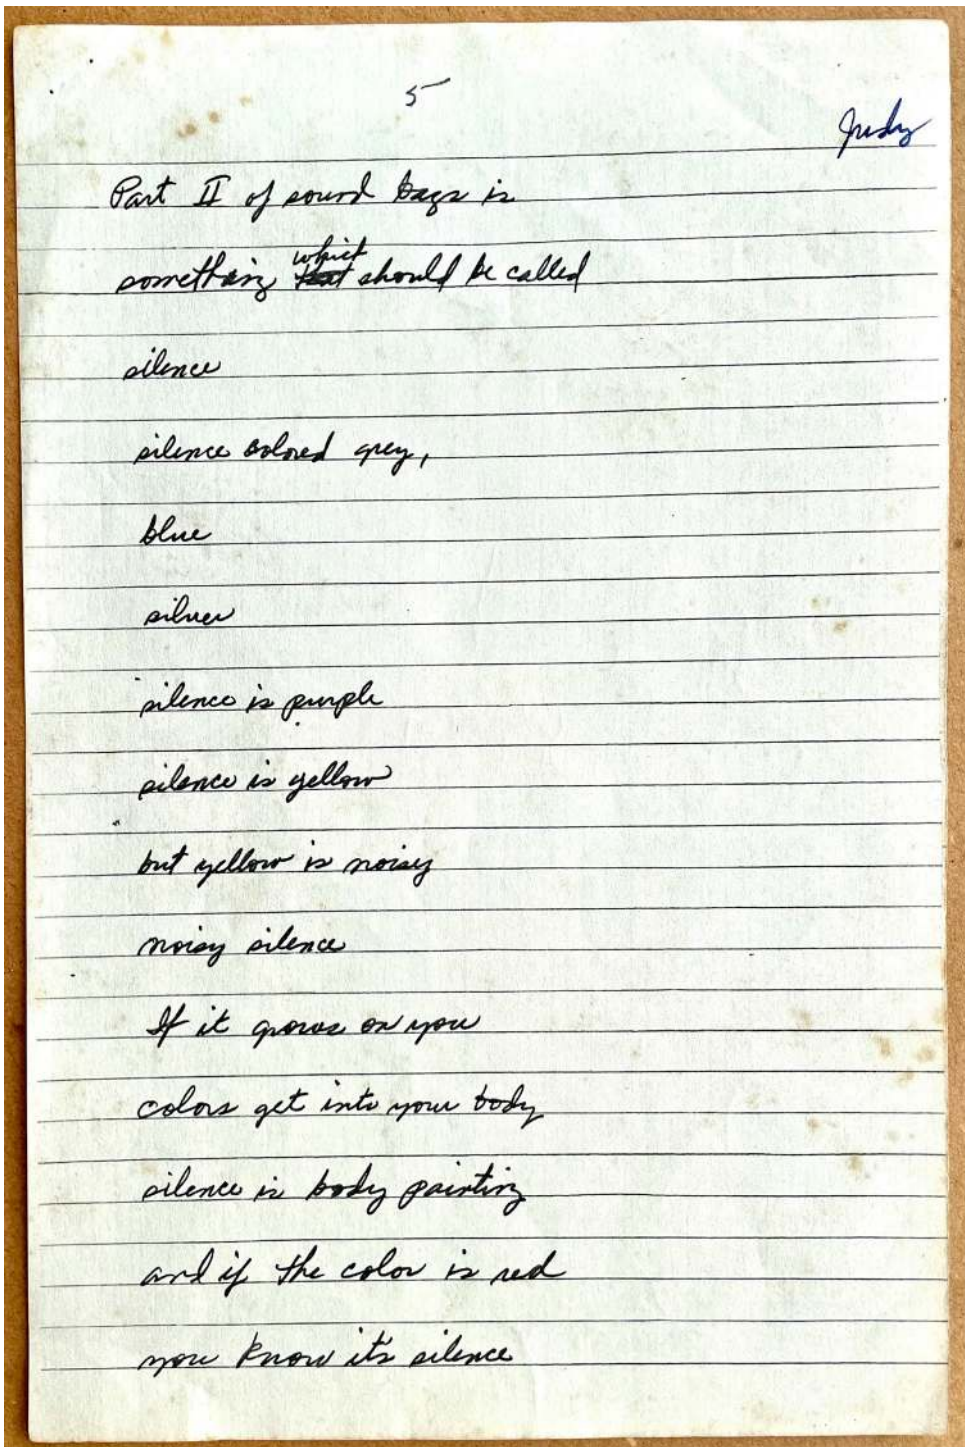 5
Judy
Part II of sound bags is
something which should be called
silence
silence colored grey,
blue
silver
silence is purple
silence is yellow
but yellow is noisy
noisy silence
If it grows on you
colors get into your body
silence is body painting
and if the color is red
you know its silence